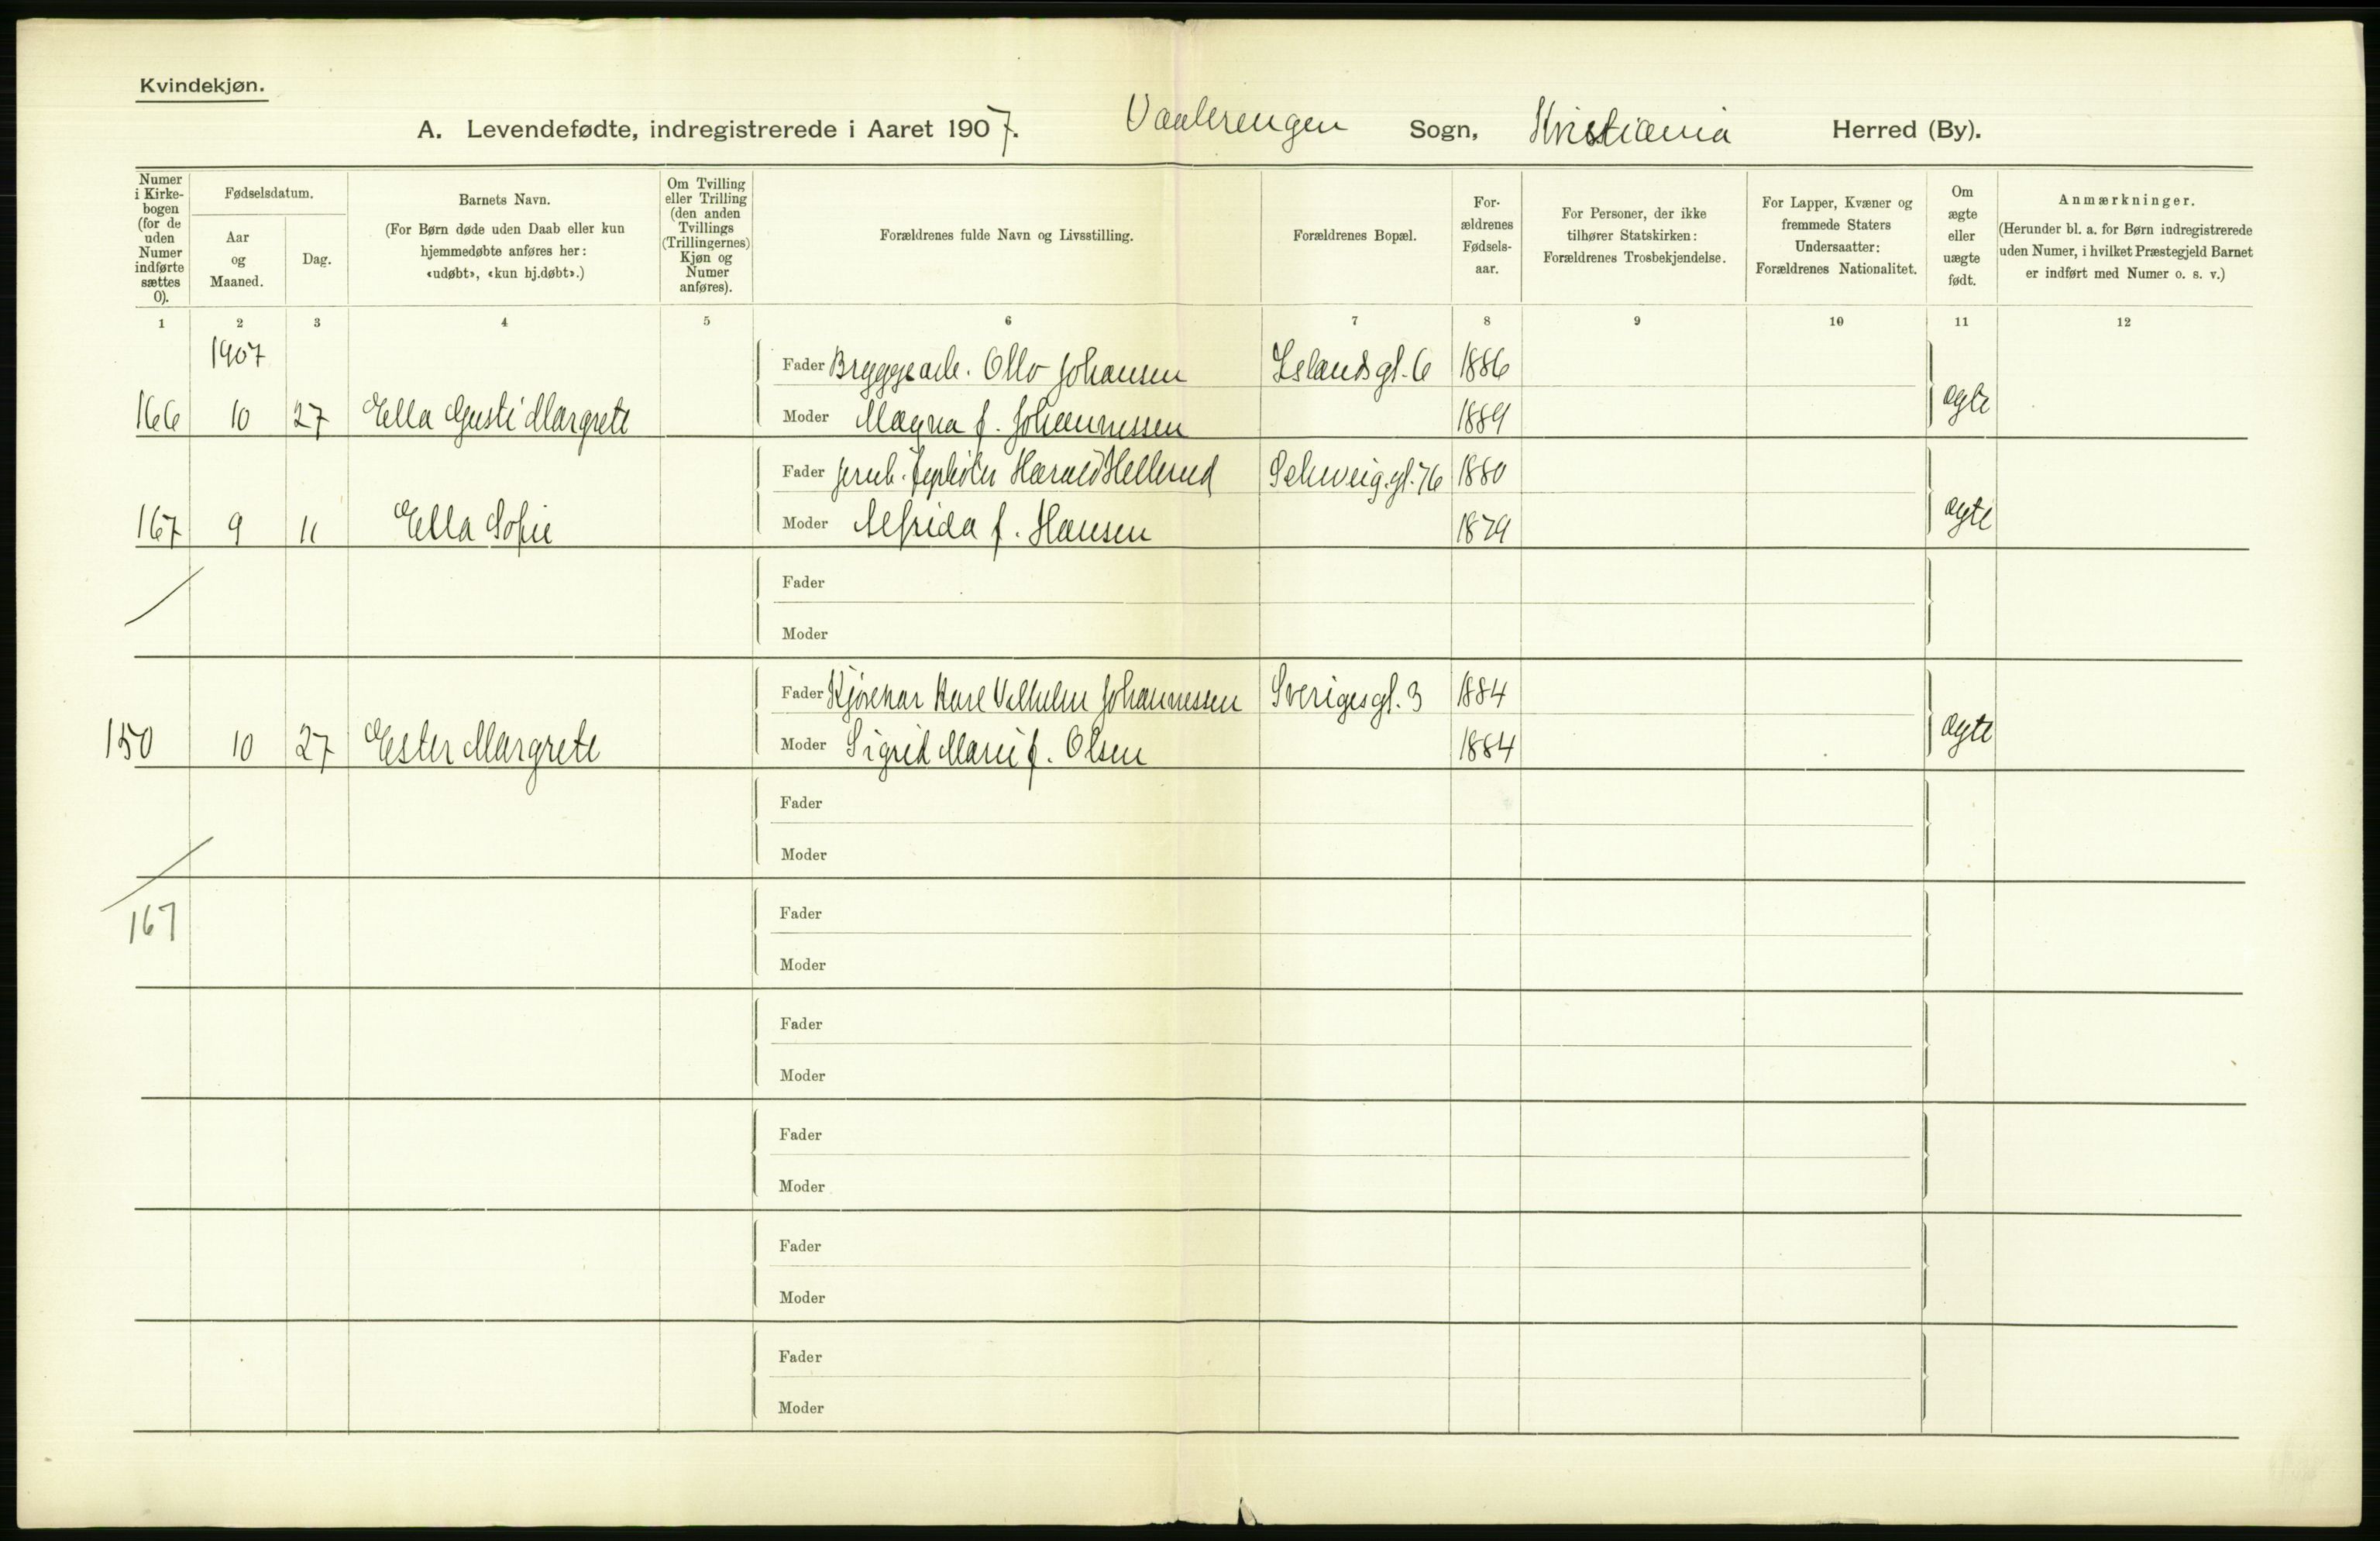 Kvindekjøn.
A. Levendefødte, indregistrerede i Aaret 1907. Vaalerengen Sogn, Kristiania Herred (By).
Numer i Kirkebogen (for de uden Numer indførte sættes 0).
Fødselsdatum.
Aar og Maaned.
Dag.
Barnets Navn.
(For Børn døde uden Daab eller kun hjemmedøbte anføres her: «udøbt», «kun hj.døbt».)
Om Tvilling eller Trilling (den anden Tvillings (Trillingernes) Kjøn og Numer anføres).
Forældrenes fulde Navn og Livsstilling.
Forældrenes Bopæl.
Forældrenes Fødselsaar.
For Personer, der ikke tilhører Statskirken: Forældrenes Trosbekjendelse.
For Lapper, Kvæner og fremmede Staters Undersaatter: Forældrenes Nationalitet.
Om ægte eller uægte født.
Anmærkninger.
(Herunder bl. a. for Børn indregistrerede uden Numer, i hvilket Præstegjeld Barnet er indført med Numer o. s. v.)
1 2 3 4 5 6 7 8 9 10 11 12
1907
Fader Bryggearb. Otto Johansen Islandsgt. 6 1886
166 10 27 Ella Gusti Margrete Moder Magna f. Johannessen 1889 ægte
Fader Harald Hellerud Schweig.gt. 76 1880
167 9 11 Ella Sofie Moder Alfrida f. Hansen 1879 ægte
Fader
Moder
Fader Kjørekar Karl Vilhelm Johannessen Sverigesgt. 3 1884
150 10 27 Ester Margrete Moder Sigrid Marie f. Olsen 1884 ægte
Fader
Moder
167
Fader
Moder
Fader
Moder
Fader
Moder
Fader
Moder
Fader
Moder